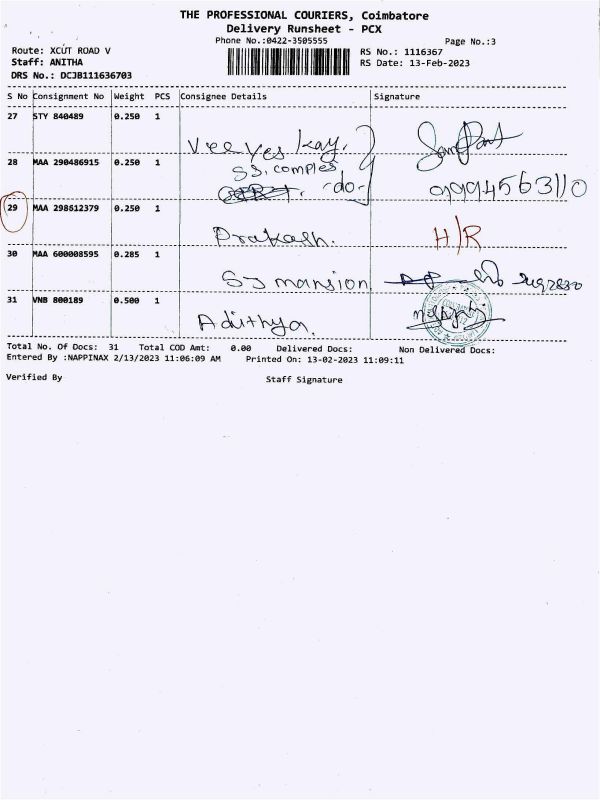 THE PROFESSIONAL COURIERS, Coimbatore
Delivery Runsheet - PCX
Phone No.:0422-3505555 Page No.:3
Route: XCUT ROAD V RS No.: 1116367
Staff: ANITHA RS Date: 13-Feb-2023
DRS No.: DCJB111636703
S No Consignment No Weight PCS Consignee Details Signature
27 STY 840489 0.250 1
Vee yes kay.
28 MAA 290486915 0.250 1
SS, comples
-do- 09994563110
29 MAA 298612379 0.250 1
Prakash. H/R
30 MAA 600008595 0.285 1
SJ mansion
31 VNB 800189 0.500 1
Adithya.
Total No. Of Docs: 31 Total COD Amt: 0.00 Delivered Docs: Non Delivered Docs:
Entered By :NAPPINAX 2/13/2023 11:06:09 AM Printed On: 13-02-2023 11:09:11
Verified By Staff Signature